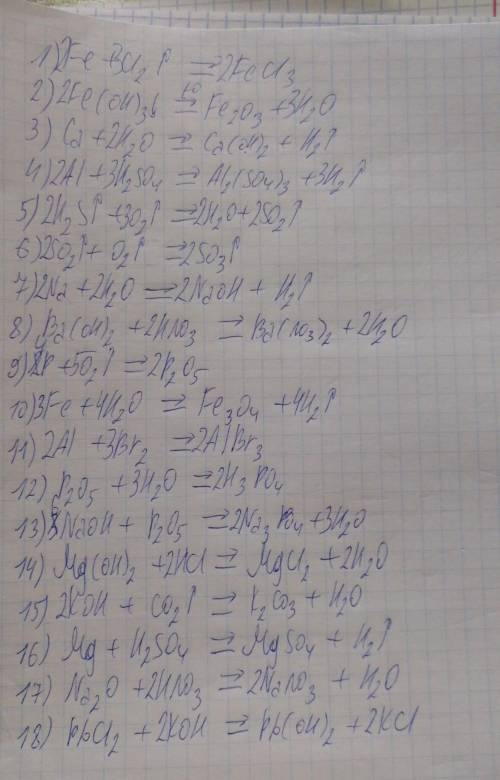 1) 2Fe + 3Cl₂↑ = 2FeCl₃
2) 2Fe(OH)₃↓ =t° Fe₂O₃ + 3H₂O
3) Ca + 2H₂O = Ca(OH)₂ + H₂↑
4) 2Al + 3H₂SO₄ = Al₂(SO₄)₃ + 3H₂↑
5) 2H₂S↑ + 3O₂↑ = 2H₂O + 2SO₂↑
6) 2SO₂↑ + O₂↑ = 2SO₃↑
7) 2Na + 2H₂O = 2NaOH + H₂↑
8) Ba(OH)₂ + 2HNO₃ = Ba(NO₃)₂ + 2H₂O
9) 4P + 5O₂↑ = 2P₂O₅
10) 3Fe + 4H₂O = Fe₃O₄ + 4H₂↑
11) 2Al + 3Br₂ = 2AlBr₃
12) P₂O₅ + 3H₂O = 2H₃PO₄
13) 6NaOH + P₂O₅ = 2Na₃PO₄ + 3H₂O
14) Mg(OH)₂ + 2HCl = MgCl₂ + 2H₂O
15) 2KOH + CO₂↑ = K₂CO₃ + H₂O
16) Mg + H₂SO₄ = MgSO₄ + H₂↑
17) Na₂O + 2HNO₃ = 2NaNO₃ + H₂O
18) PbCl₂ + 2KOH = Pb(OH)₂ + 2KCl